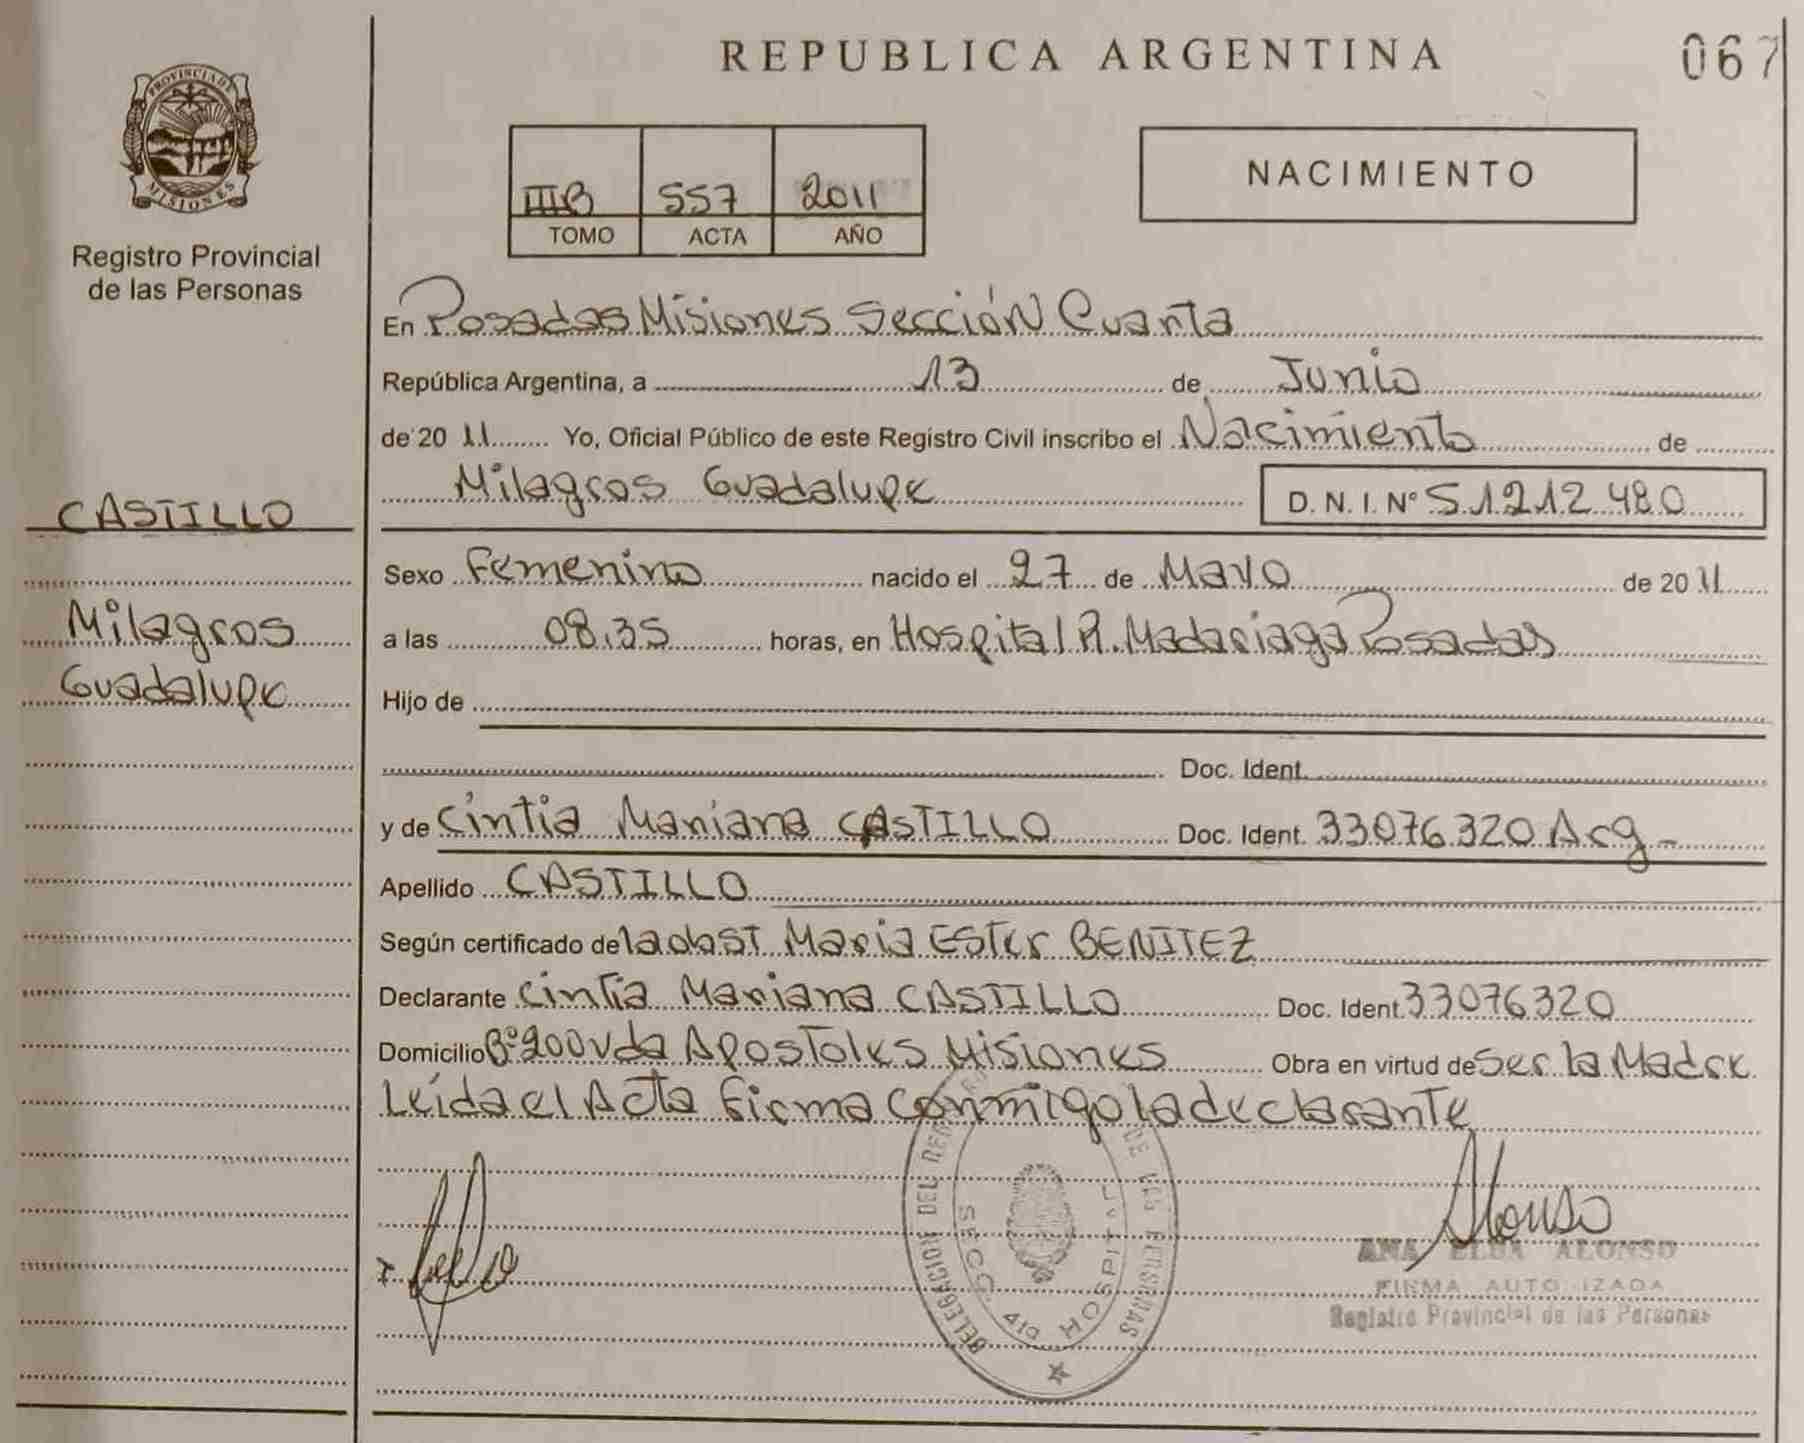 PROVINCIA DE
MISIONES
Registro Provincial
de las Personas
CASTILLO
Milagros
Guadalupe
REPUBLICA ARGENTINA
067
IIIB 557 2011
TOMO ACTA AÑO
NACIMIENTO
En Posadas Misiones Sección Cuarta
República Argentina, a 13 de Junio
de 20 11 Yo, Oficial Público de este Registro Civil inscribo el Nacimiento de
Milagros Guadalupe D. N. I. Nº 51.212.480
Sexo Femenino nacido el 27 de Mayo de 20 11
a las 08.35 horas, en Hospital R. Madariaga Posadas
Hijo de
Doc. Ident.
y de Cintia Mariana CASTILLO Doc. Ident. 33076320 Arg-
Apellido CASTILLO
Según certificado de la obst Maria Ester BENITEZ
Declarante Cintia Mariana CASTILLO Doc. Ident. 33076320
Domicilio Bº 200 vda Apostoles Misiones Obra en virtud de Ser la Madre
Leída el Acta firma conmigo la declarante
DELEGACION DEL DE LAS PERSONAS
SECC. 4ta HOSPITAL
Alonso
ANA ELBA ALONSO
FIRMA AUTORIZADA
Registro Provincial de las Personas